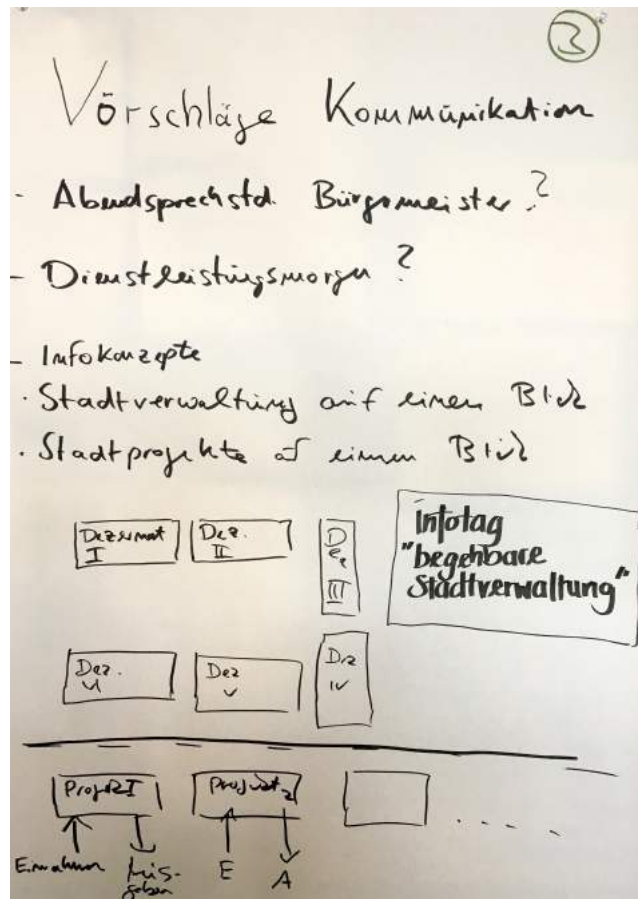 3
Vörschläge Kommünikation
- Abendsprechstd. Bürgermeister?
- Dienstleistüngsmorgen?
- Infokonzepte
· Stadtverwaltüng aüf einen Blick
· Stadtprojekte af einen Blick
Dezernat I
Dez. II
Dez III
Infotag
"begehbare
Stadtverwaltung"
Dez. VI
Dez V
Dez IV
Projekt I
Projekt 2
.....
Einnahmen
Aüs-
gaben
E
A